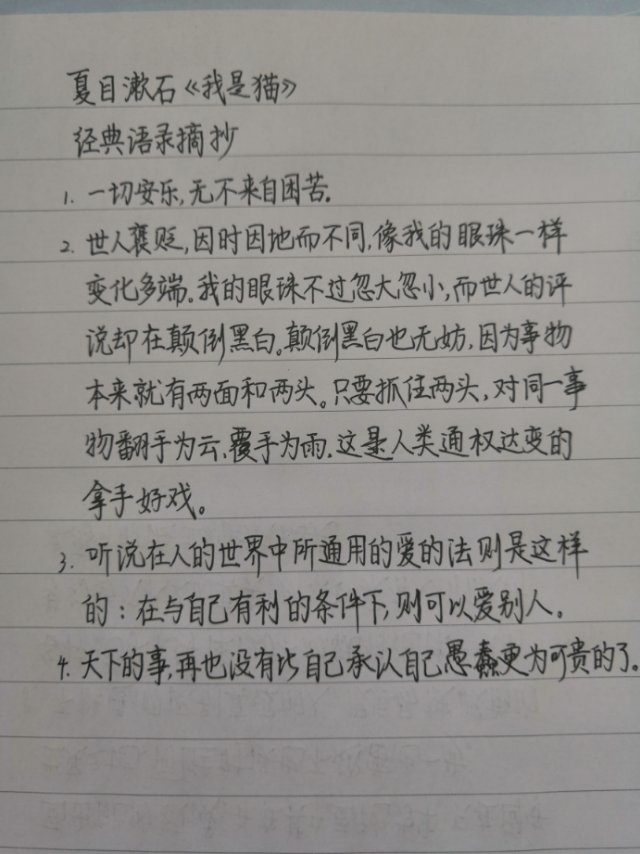 夏目漱石《我是猫》
经典语录摘抄
1. 一切安乐,无不来自困苦.
2. 世人褒贬,因时因地而不同,像我的眼珠一样
变化多端.我的眼珠不过忽大忽小,而世人的评
说却在颠倒黑白。颠倒黑白也无妨,因为事物
本来就有两面和两头。只要抓住两头,对同一事
物翻手为云,覆手为雨.这是人类通权达变的
拿手好戏。
3. 听说在人的世界中所通用的爱的法则是这样
的:在与自己有利的条件下,则可以爱别人。
4. 天下的事,再也没有比自己承认自己愚蠢更为可贵的了。